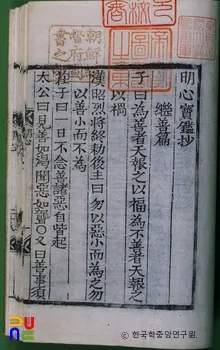 明心寶鑑抄
繼善篇
子曰爲善者天報之以福爲不善者天報之
以禍
漢昭烈將終勑後主曰勿以惡小而爲之勿
以善小而不爲
莊子曰一日不念善諸惡自皆起
太公曰見善如渴聞惡如聾○又曰善事須
ⓒ 한국학중앙연구원